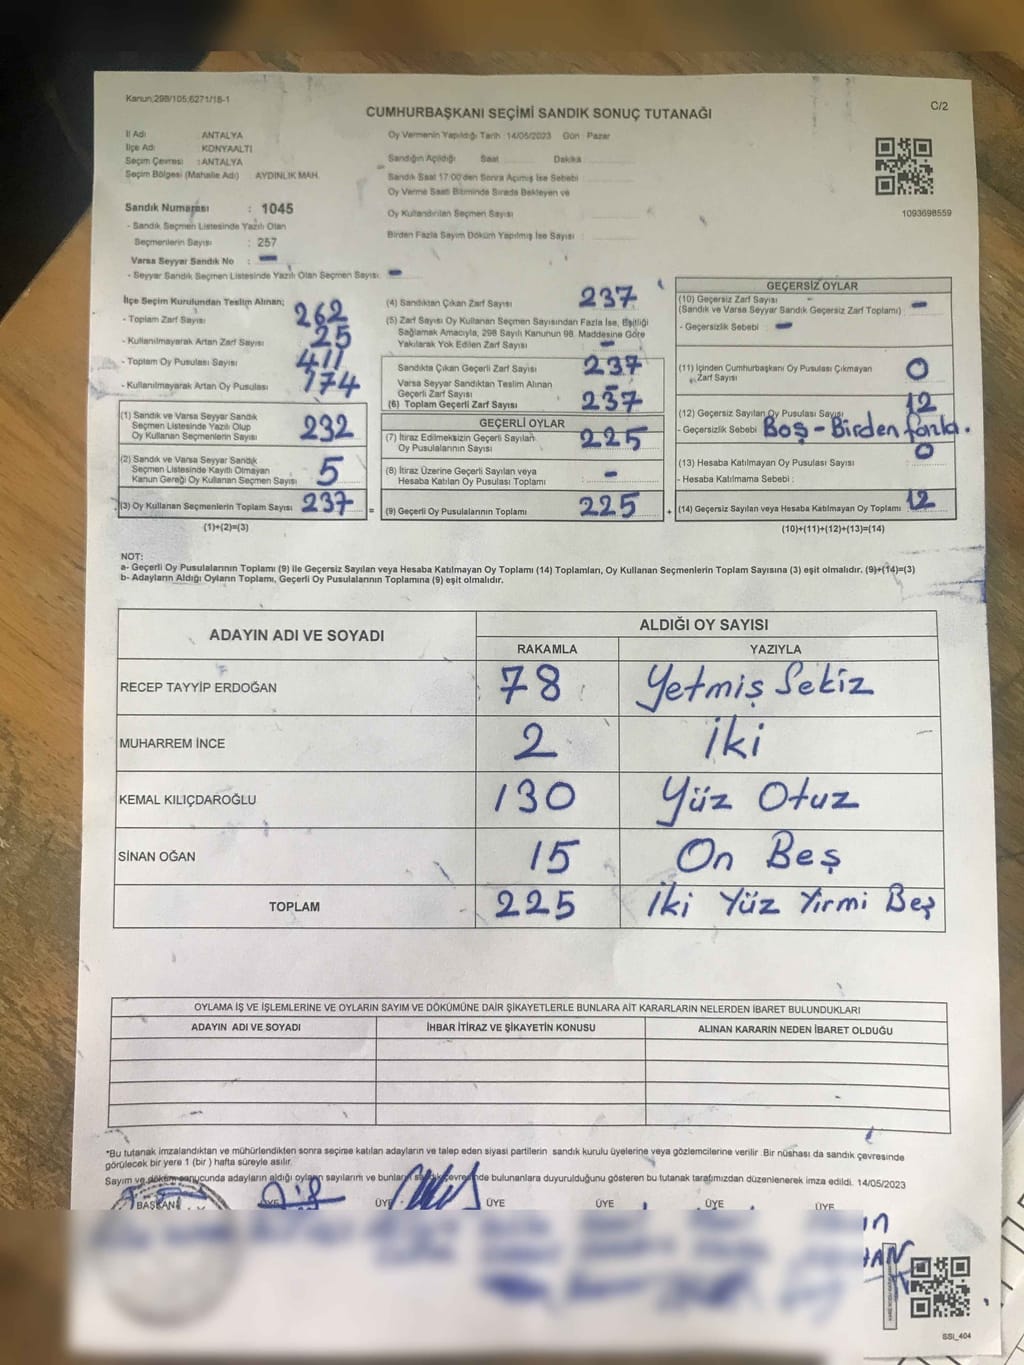 Kanun;298/105;6271/18-1
C/2
CUMHURBAŞKANI SEÇİMİ SANDIK SONUÇ TUTANAĞI
İl Adı : ANTALYA
İlçe Adı : KONYAALTI
Seçim Çevresi : ANTALYA
Seçim Bölgesi (Mahalle Adı) AYDINLIK MAH.
Sandık Numarası : 1045
- Sandık Seçmen Listesinde Yazılı Olan
Seçmenlerin Sayısı : 257
Varsa Seyyar Sandık No : -
- Seyyar Sandık Seçmen Listesinde Yazılı Olan Seçmen Sayısı: -
Oy Vermenin Yapıldığı Tarih :14/05/2023 Gün : Pazar
Sandığın Açıldığı Saat Dakika
Sandık Saat 17:00'den Sonra Açılmış İse Sebebi
Oy Verme Saati Bitiminde Sırada Bekleyen ve
Oy Kullandırılan Seçmen Sayısı
Birden Fazla Sayım Döküm Yapılmış İse Sayısı :
1093698559
İlçe Seçim Kurulundan Teslim Alınan;
- Toplam Zarf Sayısı 262
- Kullanılmayarak Artan Zarf Sayısı 25
- Toplam Oy Pusulası Sayısı 411
- Kullanılmayarak Artan Oy Pusulası 174
(1) Sandık ve Varsa Seyyar Sandık
Seçmen Listesinde Yazılı Olup
Oy Kullanan Seçmenlerin Sayısı 232
(2) Sandık ve Varsa Seyyar Sandık
Seçmen Listesinde Kayıtlı Olmayan
Kanun Gereği Oy Kullanan Seçmen Sayısı 5
(3) Oy Kullanan Seçmenlerin Toplam Sayısı 237 =
(1)+(2)=(3)
(4) Sandıktan Çıkan Zarf Sayısı 237
(5) Zarf Sayısı Oy Kullanan Seçmen Sayısından Fazla İse, Eşitliği
Sağlamak Amacıyla, 298 Sayılı Kanunun 98. Maddesine Göre
Yakılarak Yok Edilen Zarf Sayısı -
Sandıkta Çıkan Geçerli Zarf Sayısı 237
Varsa Seyyar Sandıktan Teslim Alınan
Geçerli Zarf Sayısı
(6) Toplam Geçerli Zarf Sayısı 237
GEÇERLİ OYLAR
(7) İtiraz Edilmeksizin Geçerli Sayılan
Oy Pusulalarının Sayısı 225
(8) İtiraz Üzerine Geçerli Sayılan veya
Hesaba Katılan Oy Pusulası Toplamı : -
(9) Geçerli Oy Pusulalarının Toplamı 225 +
GEÇERSİZ OYLAR
(10) Geçersiz Zarf Sayısı
(Sandık ve Varsa Seyyar Sandık Geçersiz Zarf Toplamı) : -
- Geçersizlik Sebebi : -
(11) İçinden Cumhurbaşkanı Oy Pusulası Çıkmayan
Zarf Sayısı 0
(12) Geçersiz Sayılan Oy Pusulası Sayısı 12
- Geçersizlik Sebebi Boş - Birden fazla.
(13) Hesaba Katılmayan Oy Pusulası Sayısı 0
- Hesaba Katılmama Sebebi :
(14) Geçersiz Sayılan veya Hesaba Katılmayan Oy Toplamı 12
(10)+(11)+(12)+(13)=(14)
NOT:
a- Geçerli Oy Pusulalarının Toplamı (9) ile Geçersiz Sayılan veya Hesaba Katılmayan Oy Toplamı (14) Toplamları, Oy Kullanan Seçmenlerin Toplam Sayısına (3) eşit olmalıdır. (9)+(14)=(3)
b- Adayların Aldığı Oyların Toplamı, Geçerli Oy Pusulalarının Toplamına (9) eşit olmalıdır.
ADAYIN ADI VE SOYADI
ALDIĞI OY SAYISI
RAKAMLA YAZIYLA
RECEP TAYYİP ERDOĞAN 78 Yetmiş Sekiz
MUHARREM İNCE 2 İki
KEMAL KILIÇDAROĞLU 130 Yüz Otuz
SİNAN OĞAN 15 On Beş
TOPLAM 225 İki Yüz Yirmi Beş
OYLAMA İŞ VE İŞLEMLERİNE VE OYLARIN SAYIM VE DÖKÜMÜNE DAİR ŞİKAYETLERLE BUNLARA AİT KARARLARIN NELERDEN İBARET BULUNDUKLARI
ADAYIN ADI VE SOYADI İHBAR İTİRAZ VE ŞİKAYETİN KONUSU ALINAN KARARIN NEDEN İBARET OLDUĞU
*Bu tutanak imzalandıktan ve mühürlendikten sonra seçime katılan adayların ve talep eden siyasi partilerin sandık kurulu üyelerine veya gözlemcilerine verilir. Bir nüshası da sandık çevresinde
görülecek bir yere 1 (bir ) hafta süreyle asılır.
Sayım ve döküm sonucunda adayların aldığı oyların sayılarını ve bunların sandık çevresinde bulunanlara duyurulduğunu gösteren bu tutanak tarafımızdan düzenlenerek imza edildi. 14/05/2023
BAŞKAN ÜYE ÜYE ÜYE ÜYE ÜYE ÜYE
SSI_404